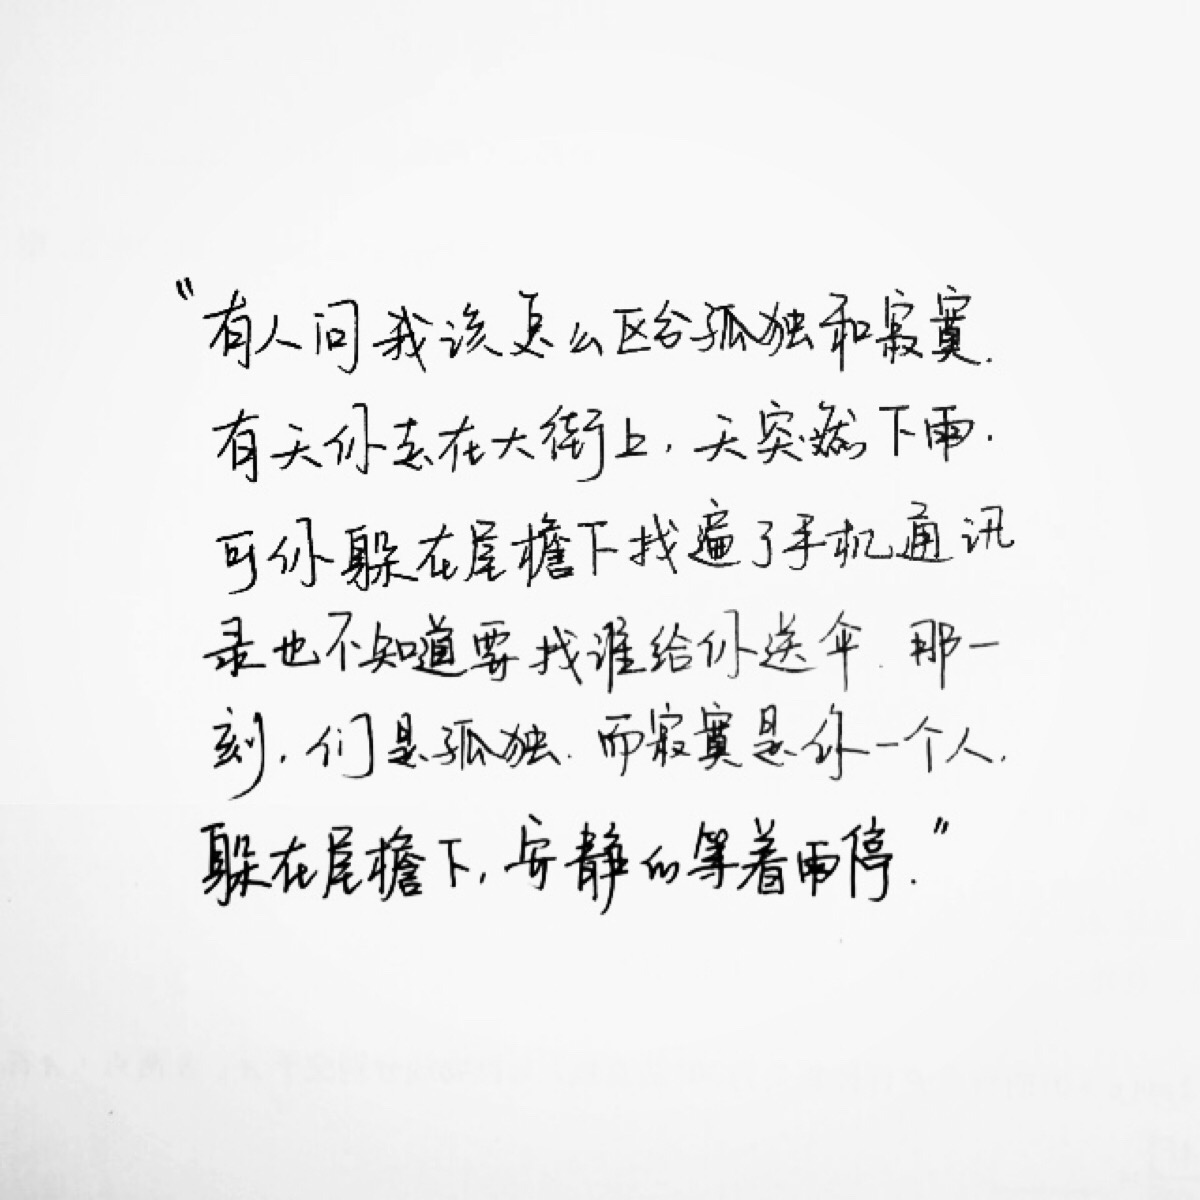 “有人问我该怎么区分孤独和寂寞.
有天你走在大街上,天突然下雨.
可你躲在屋檐下找遍了手机通讯
录也不知道要找谁给你送伞.那一
刻,们是孤独.而寂寞是你一个人.
躲在屋檐下,安静的等着雨停.”